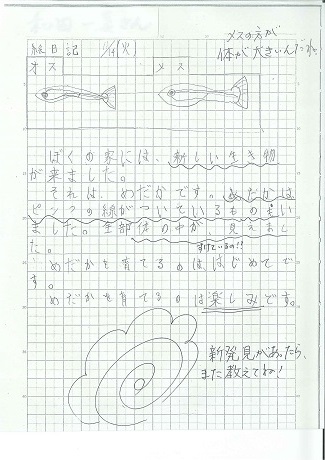 絵日記 (火)
メスの方が
体が大きいんだね。
オス メス
ぼくの家には、新しい生き物
が来ました。
それは、めだかです。めだかは
ピンクの線がついているものもい
ました。全部体の中が、見えまし
た。
すけているの!!
めだかを育てるのははじめてで
す。
めだかを育てるのは楽しみです。
新発見があったら、
また教えてね!